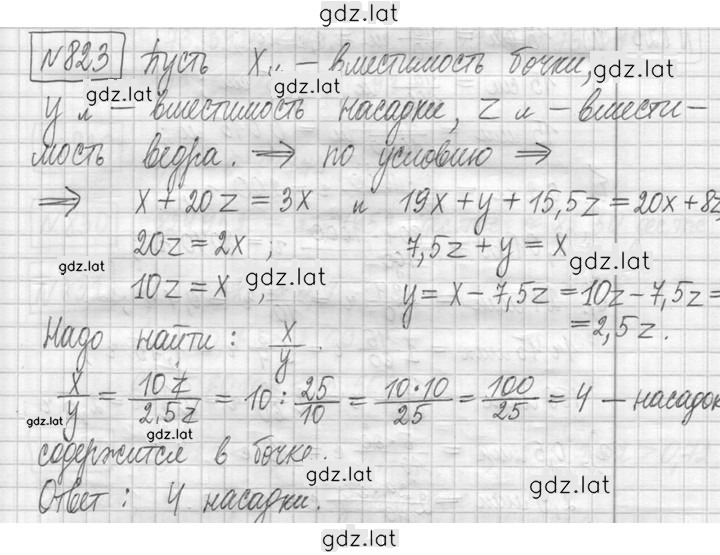 gdz.lat
№823 Пусть x л — вместимость бочки, gdz.lat
gdz.lat gdz.lat
y л — вместимость насадки, z л — вмести-
мость ведра. ⟹ по условию ⟹
⟹ x + 20z = 3x и 19x + y + 15,5z = 20x + 8z,
20z = 2x ; 7,5z + y = x
gdz.lat gdz.lat gdz.lat
10z = x , y = x - 7,5z = 10z - 7,5z =
= 2,5z.
Надо найти : x/y .
x/y = 10z/2,5z = 10 : 25/10 = 10·10/25 = 100/25 = 4 — насадок
gdz.lat gdz.lat
содержится в бочке.
gdz.lat gdz.lat
Ответ : 4 насадки.
gdz.lat